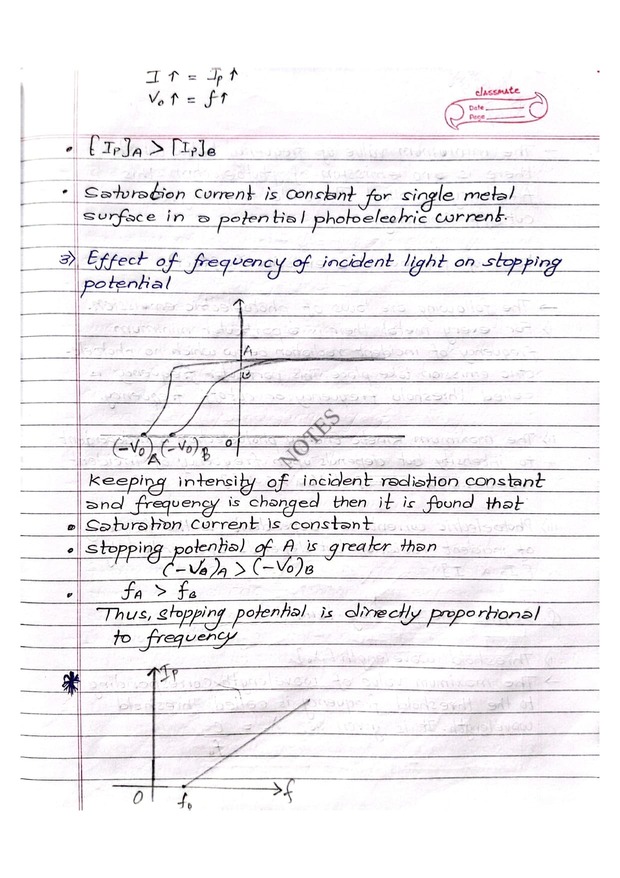 I ↑ = Ip ↑
V₀ ↑ = f ↑
classmate
Date
Page
• [Ip]A > [Ip]B
• Saturation current is constant for single metal
surface in a potential photoelectric current.
3) Effect of frequency of incident light on stopping
potential
A
B
(-V0)A (-V0)B 0
NOTES
Keeping intensity of incident radiation constant
and frequency is changed then it is found that
• Saturation current is constant
• stopping potential of A is greater than
(-V0)A > (-V0)B
• fA > fB
Thus, stopping potential is directly proportional
to frequency
* Ip
0 f₀ f